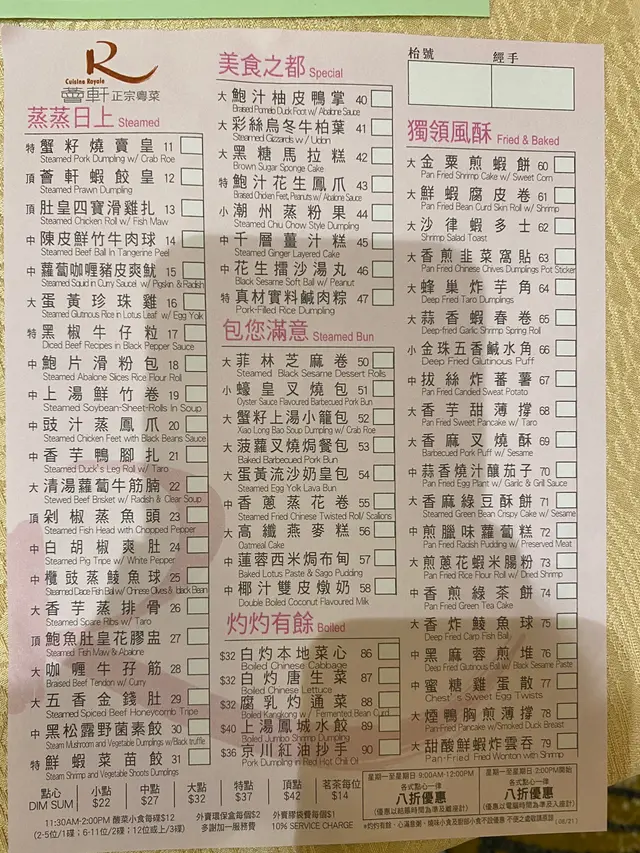 R
Cuisine Royale
薈軒 正宗粵菜
蒸蒸日上 Steamed
特 蟹籽燒賣皇 11
Steamed Pork Dumpling w/ Crab Roe
頂 薈軒蝦餃皇 12
Steamed Prawn Dumpling
頂 肚皇四寶滑雞扎 13
Steamed Chicken Roll w/ Fish Maw
中 陳皮鮮竹牛肉球 14
Steamed Beef Ball In Tangerine Peel
中 蘿蔔咖喱豬皮爽魷 15
Steamed Squid in Curry Sauce w/ Pigskin & Radish
大 蛋黃珍珠雞 16
Steamed Glutinous Rice in Lotus Leaf w/ Egg Yolk
特 黑椒牛仔粒 17
Diced Beef Recipes in Black Pepper Sauce
中 鮑片滑粉包 18
Steamed Abalone Slices Rice Flour Roll
中 上湯鮮竹卷 19
Steamed Soybean-Sheet-Rolls In Soup
中 豉汁蒸鳳爪 20
Steamed Chicken Feet with Black Beans Sauce
中 香芋鴨腳扎 21
Steamed Duck's Leg Roll w/ Taro
大 清湯蘿蔔牛筋腩 22
Stewed Beef Brisket w/ Radish & Clear Soup
頂 剁椒蒸魚頭 23
Steamed Fish Head with Chopped Pepper
中 白胡椒爽肚 24
Steamed Pig Tripe w/ White Pepper
中 欖豉蒸鯪魚球 25
Steamed Dace Fish Ball w/ Chinese Olives & black Bean
大 香芋蒸排骨 26
Steamed Spare Ribs w/ Taro
頂 鮑魚肚皇花膠盅 27
Steamed Fish Maw & Abalone
大 咖喱牛孖筋 28
Braised Beef Tendon w/ Curry
大 五香金錢肚 29
Steamed Spiced Beef Honeycomb Tripe
中 黑松露野菌素餃 30
Steam Mushroom and Vegetable Dumplings w/Black truffle
特 鮮蝦菜苗餃 31
Steam Shrimp and Vegetable Shoots Dumplings
美食之都 Special
大 鮑汁柚皮鴨掌 40
Braised Pomelo Duck Foot w/ Abalone Sauce
大 彩絲烏冬牛柏葉 41
Steamed Gizzards w/ Udon
大 黑糖馬拉糕 42
Brown Sugar Sponge Cake
特 鮑汁花生鳳爪 43
Braised Chicken Feet, Peanuts w/ Abalone Sauce
小 潮州蒸粉果 44
Steamed Chiu Chow Style Dumpling
中 千層薑汁糕 45
Steamed Ginger Layered Cake
中 花生擂沙湯丸 46
Black Sesame Soft Ball w/ Peanut
特 真材實料鹹肉粽 47
Pork-Filled Rice Dumpling
包您滿意 Steamed Bun
大 菲林芝麻卷 50
Steamed Black Sesame Dessert Rolls
小 蠔皇叉燒包 51
Oyster Sauce Flavoured Barbecued Pork Bun
大 蟹籽上湯小籠包 52
Xiao Long Bao Soup Dumpling w/ Crab Roe
大 菠蘿叉燒焗餐包 53
Baked Barbecued Pork Bun
大 蛋黃流沙奶皇包 54
Steamed Egg Yolk Lava Bun
中 香蔥蒸花卷 55
Steamed Fried Chinese Twisted Roll/ Scallions
大 高纖燕麥糕 56
Oatmeal Cake
中 蓮蓉西米焗布甸 57
Baked Lotus Paste & Sago Pudding
中 椰汁雙皮燉奶 58
Double Boiled Coconut Flavoured Milk
灼灼有餘 Boiled
$32 白灼本地菜心 86
Boiled Chinese Cabbage
$32 白灼唐生菜 87
Boiled Chinese Lettuce
$32 腐乳灼通菜 88
Boiled Kangkong w/ Fermented Bean Curd
$40 上湯鳳城水餃 89
Boiled Jumbo Shrimp Dumpling
$36 京川紅油抄手 90
Pork Dumpling in Red Hot Chili Oil
枱號 經手
獨領風酥 Fried & Baked
大 金粟煎蝦餅 60
Pan Fried Shrimp Cake w/ Sweet Corn
大 鮮蝦腐皮卷 61
Pan Fried Bean Curd Skin Roll w/ Shrimp
大 沙律蝦多士 62
Shrimp Salad Toast
大 香煎韭菜窩貼 63
Pan Fried Chinese Chives Dumplings Pot Sticker
大 蜂巢炸芋角 64
Deep Fried Taro Dumplings
大 蒜香蝦春卷 65
Deep-fried Garlic Shrimp Spring Roll
小 金珠五香鹹水角 66
Deep Fried Glutinous Puff
中 拔絲炸蕃薯 67
Pan Fried Candied Sweet Potato
大 香芋甜薄撐 68
Pan Fried Sweet Pancake w/ Taro
大 香麻叉燒酥 69
Barbecued Pork Puff w/ Sesame
中 蒜香燒汁釀茄子 70
Pan Fried Egg Plant w/ Garlic & Grill Sauce
大 香麻綠豆酥餅 71
Steamed Green Bean Crispy Cake w/ Sesame
中 煎臘味蘿蔔糕 72
Pan Fried Radish Pudding w/ Preserved Meat
大 煎蔥花蝦米腸粉 73
Pan Fried Rice Flour Roll w/ Dried Shrimp
中 香煎綠茶餅 74
Pan Fried Green Tea Cake
大 香炸鯪魚球 75
Deep Fried Carp Fish Ball
中 黑麻蓉煎堆 76
Deep Fried Glutinous Ball w/ Black Sesame Paste
中 蜜糖雞蛋散 77
Chest's Sweet Egg Twists
大 煙鴨胸煎薄撐 78
Pan-Fried Pancake w/Smoked Duck Breast
大 甜酸鮮蝦炸雲吞 79
Pan-Fried Fried Wonton with Shrimp
點心 DIM SUM
小點 $22
中點 $27
大點 $32
特點 $37
頂點 $42
茗茶每位 $14
11:30AM-2:00PM 醃菜小食每碟$12
(2-5位/1碟；6-11位/2碟；12位或上/3碟)
外賣環保盒每個$2
多謝加一服務費
外賣膠袋費每個$1
10% SERVICE CHARGE
星期一至星期日 9:00AM-12:00PM
各式點心一律
八折優惠
(優惠以結賬時間為準及離座計)
星期一至星期日 2:00PM開始
各式點心一律
八折優惠
(優惠以電腦時間為準及入座計)
*灼灼有餘、心滿意粥、燒味小食及廚部小食不設優惠 不便之處敬請原諒 (08/21)